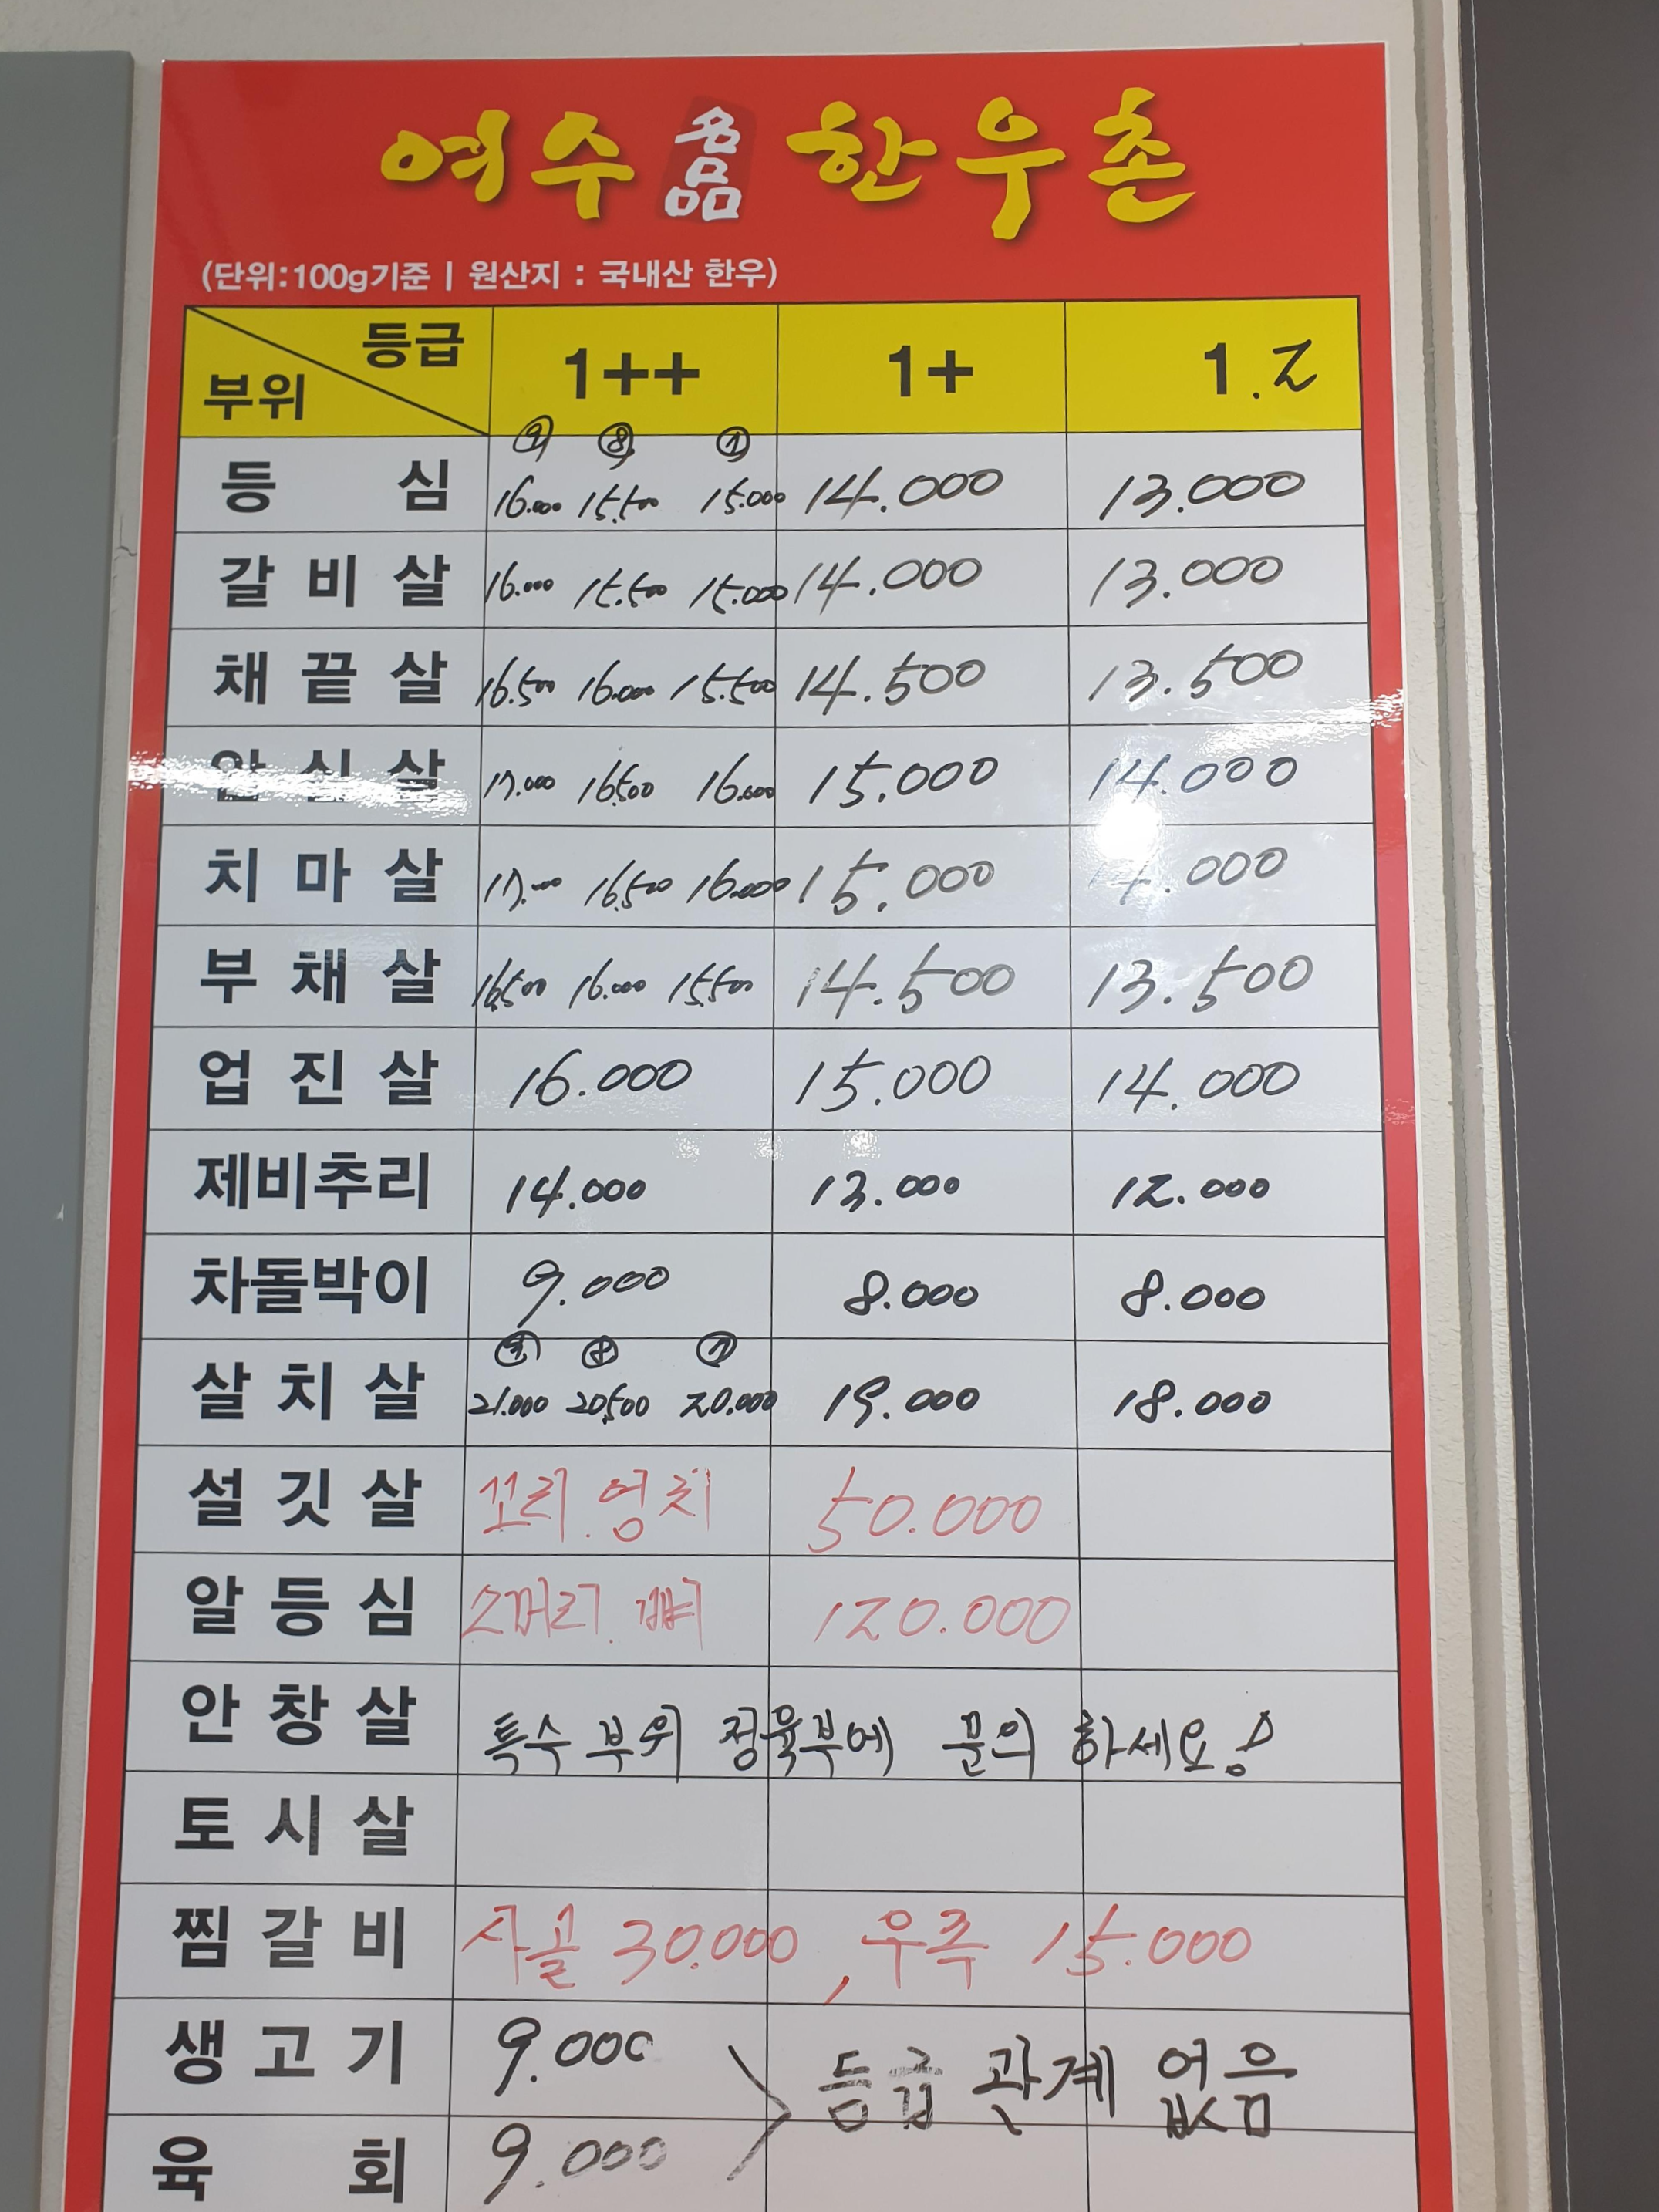 여수 名品 한우촌
(단위:100g기준 | 원산지 : 국내산 한우)
등급 부위 1++ 1+ 1.2
⑨ ⑧ ⑦
등 심 16.000 15.500 15.000 14.000 13.000
갈 비 살 16.000 15.500 15.000 14.000 13.000
채 끝 살 16.500 16.000 15.500 14.500 13.500
안 심 살 17.000 16.500 16.000 15.000 14.000
치 마 살 17.000 16.500 16.000 15.000 14.000
부 채 살 16.500 16.000 15.500 14.500 13.500
업 진 살 16.000 15.000 14.000
제비추리 14.000 13.000 12.000
차돌박이 9.000 8.000 8.000
⑨ ⑧ ⑦
살 치 살 21.000 20.500 20.000 19.000 18.000
설 깃 살 꼬리.엉치 50.000
알 등 심 소머리. 120.000
안 창 살 특수 부위 정육부에 문의 하세요!
토 시 살
찜 갈 비 사골 30.000, 우족 15.000
생 고 기 9.000 등급 관계 없음
육 회 9.000